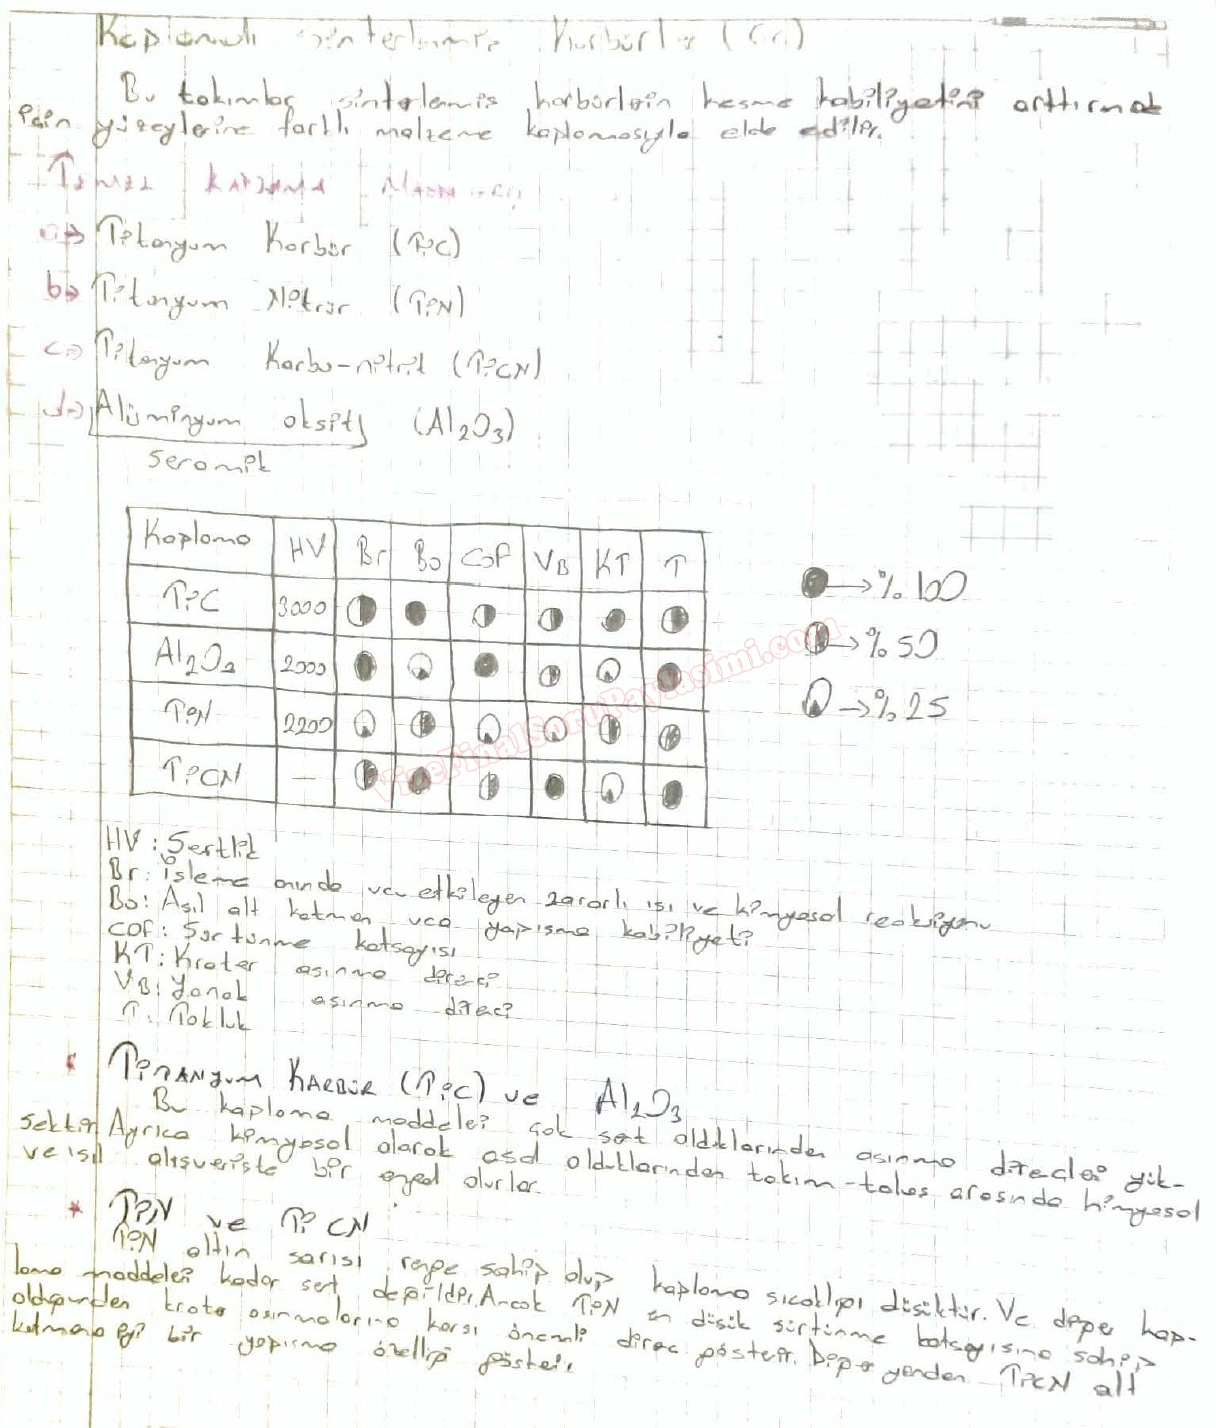 Kaplamalı sinterlenmiş Karbürler
Bu takımlar sinterlemis karbürlerin kesme kabiliyetini arttırmak
için yüzeylerine farklı malzeme kaplamasıyla elde edilir.
TEMEL KAPLAMA
a=> Titanyum Karbür (TiC)
b=> Titanyum Nitrür (TiN)
c=> Titanyum Karbo-nitrit (TiCN)
d=> Alüminyum oksit (Al2O3)
Seramik
Kaplama HV Br Bo Cof VB KT T
TiC 3000
Al2O3 2000
TiN 2200
TiCN —
→ % 100
→ % 50
→ % 25
ViseFinalSoruPaylasimi.com
HV : Sertlik
Br : İşleme anında ucu etkileyen zararlı ısı ve kimyasal reaksiyonu
Bo : Asıl alt katman uca yapışma kabiliyeti
Cof : Sürtünme katsayısı
KT : Krater aşınma direnci
VB : Yanak aşınma direci
T : Tokluk
* TİTANYUM KARBÜR (TiC) ve Al2O3
Bu kaplama maddeleri çok sert olduklarından aşınma direçleri yük-
sektir. Ayrıca kimyasal olarak asal olduklarından takım-talaş arasında kimyasal
ve ısıl alışverişte bir engel olurlar.
* TiN ve TiCN
TiN altın sarısı renge sahip olup kaplama sıcaklığı düşüktür. Ve diğer kap-
lama maddeleri kadar sert değildir. Ancak TiN en düşük sürtünme katsayısına sahip
olduğundan krater aşınmalarına karşı önemli direç gösterir. Diğer yandan TiCN alt
katmana iyi bir yapışma özelliği gösterir.